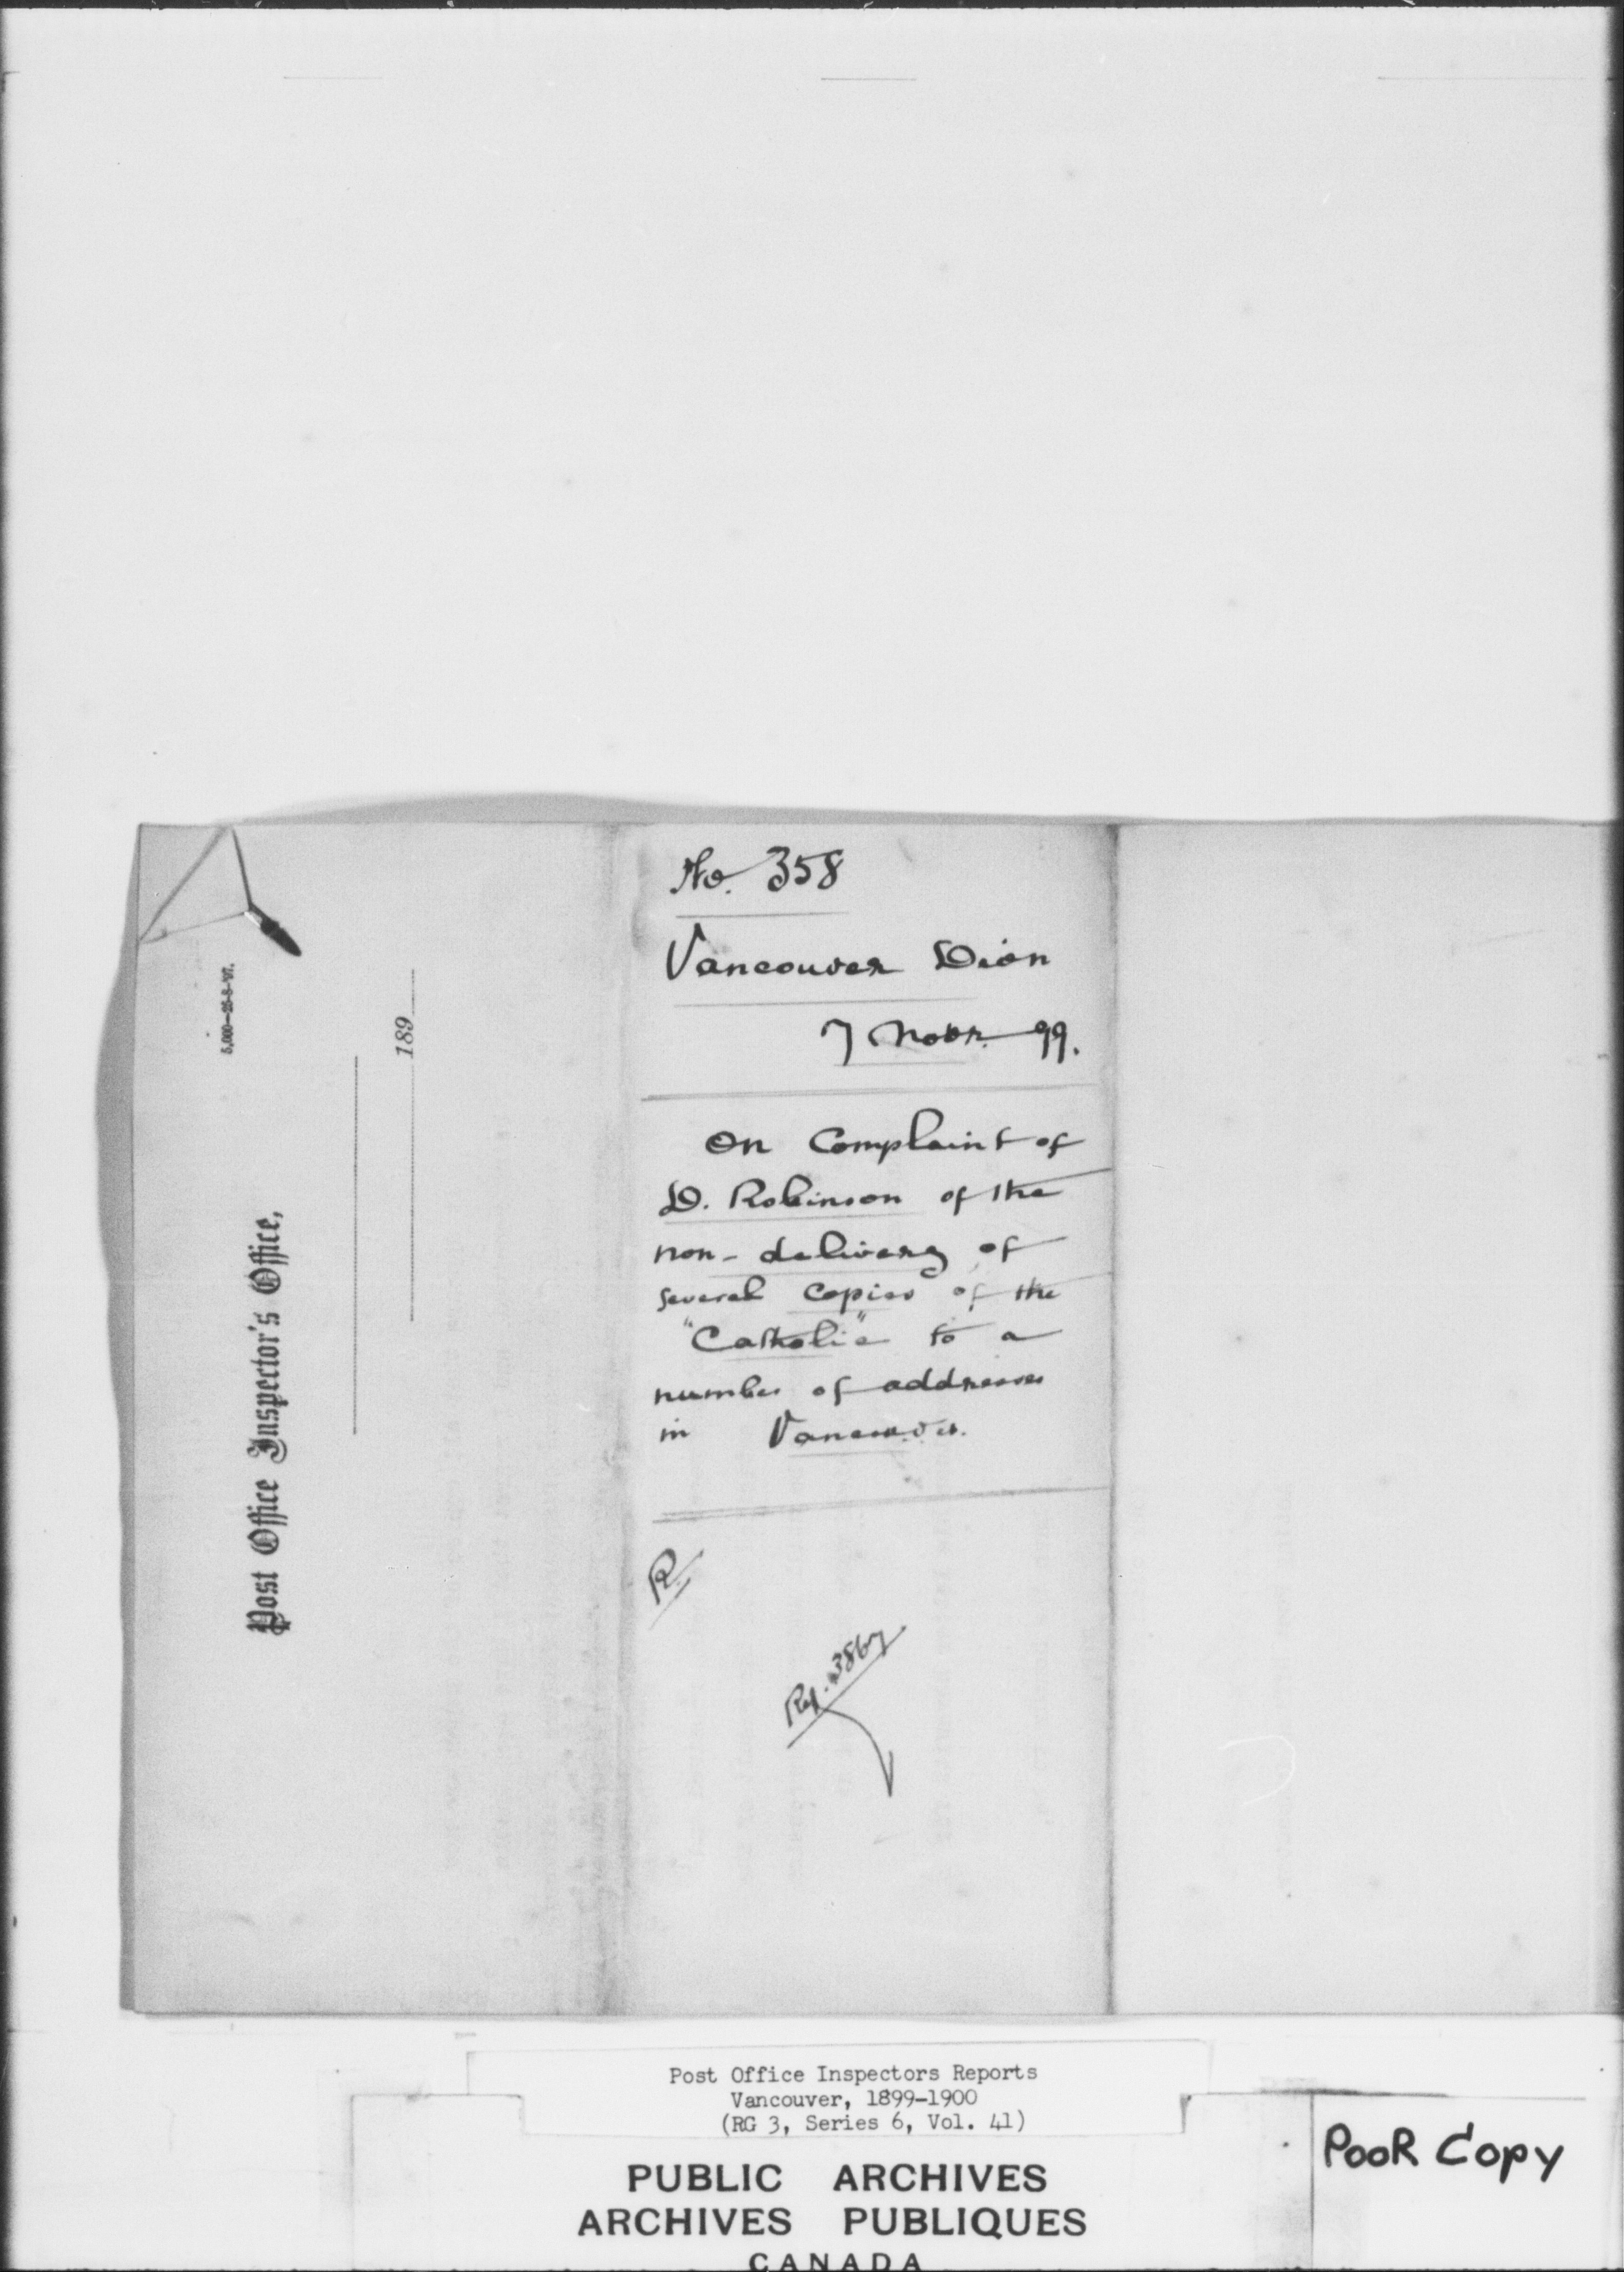 No. 358
Vancouver Dion
7 Novr. 99.
On Complaint of
D. Robinson of the
non-delivery of
several copies of the
"Catholic" to a
number of addresses
in Vancouver.
R.
5,000—25-8-'97.
189
Post Office Inspector's Office,
Post Office Inspectors Reports
Vancouver, 1899-1900
(RG 3, Series 6, Vol. 41)
PUBLIC ARCHIVES
ARCHIVES PUBLIQUES
CANADA
POOR COPY